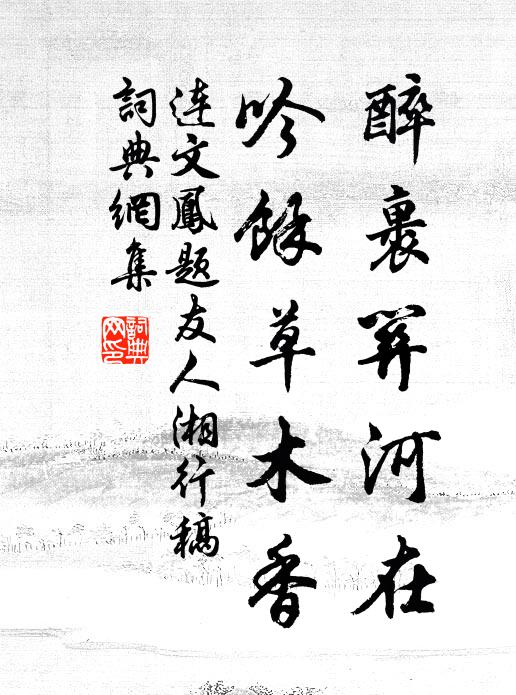 醉裏關河在
吟餘草木香
連文鳳題友人湘行稿
詞典網集
詞典網印